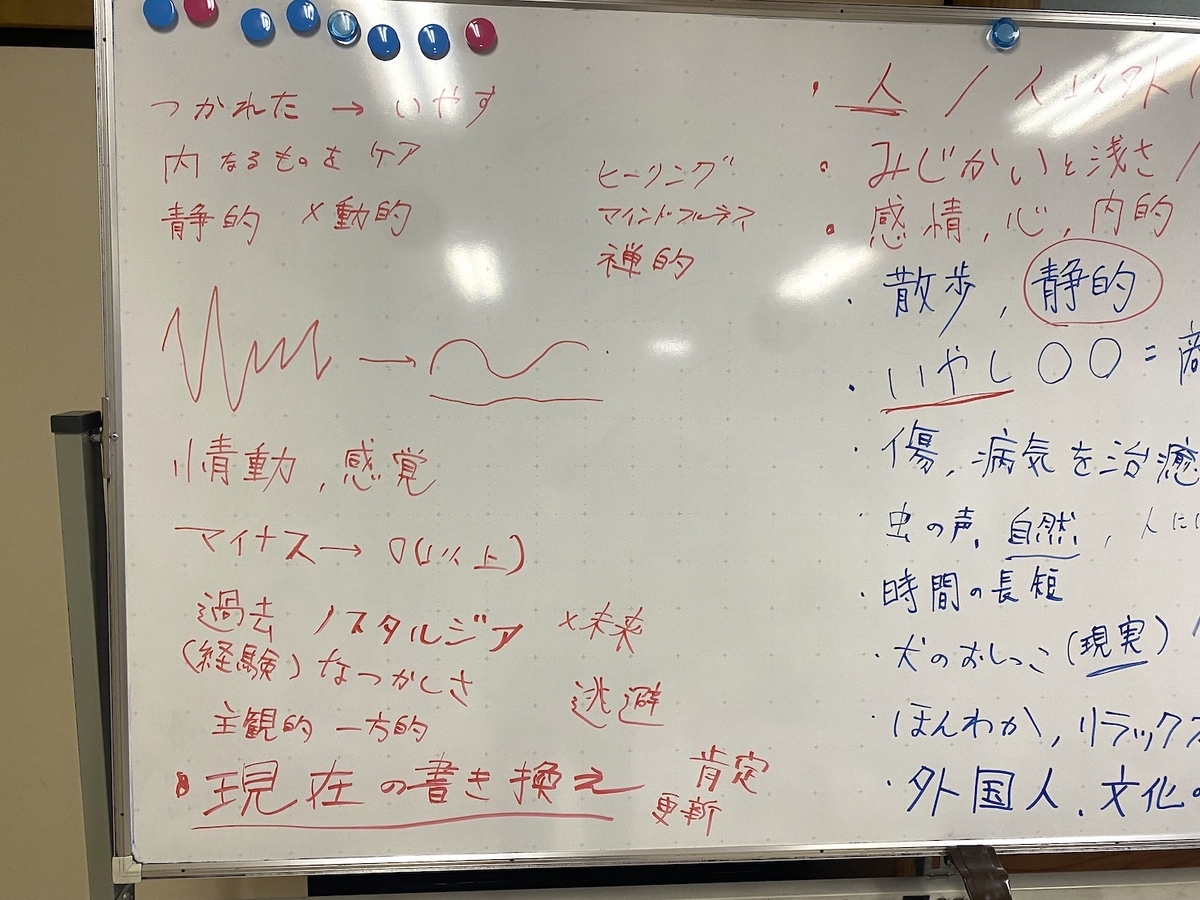 つかれた → いやす
内なるものを ケア
静的 ×動的
ヒーリング
マインドフルネス
禅的
→
情動, 感覚
マイナス → 0(以上)
過去 ノスタルジア ×未来
(経験) なつかしさ
逃避
主観的 一方的
・現在の書き換え
肯定
更新
・人 / 人以外(
・みじかいと浅さ /
・感情, 心, 内的
・散歩, 静的
・いやし〇〇 =
・傷, 病気を治癒
・虫の声, 自然, 人に
・時間の長短
・犬のおしっこ (現実)
・ほんわか, リラックス
・外国人, 文化の